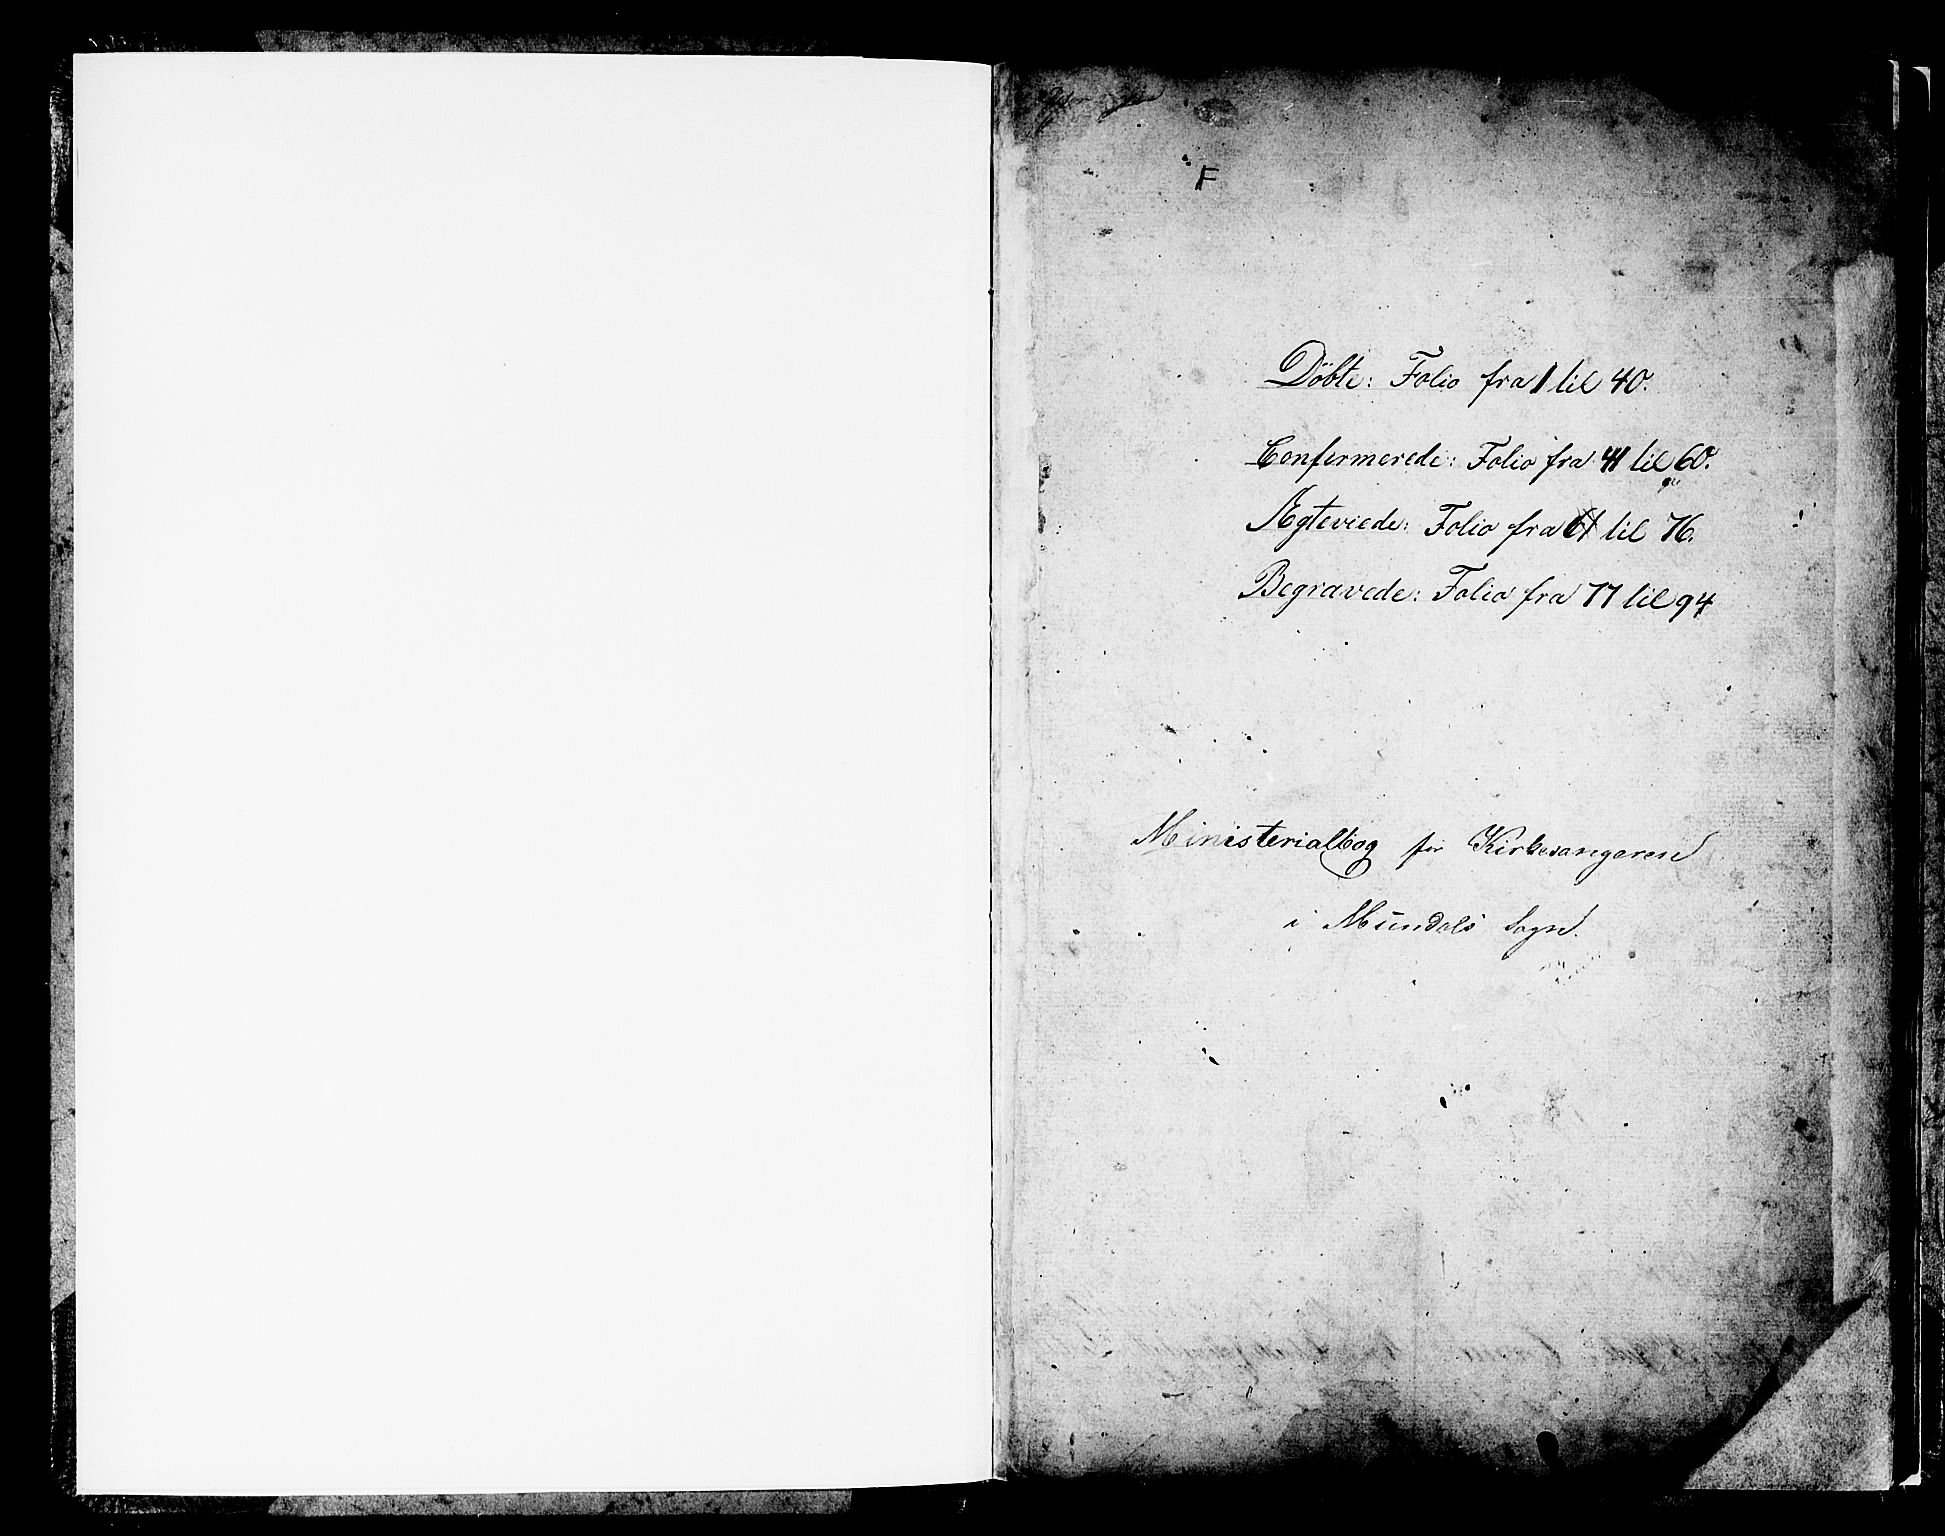 F
Döbte: Folio fra 1 til 40.
Confermerede: Folio fra 41 til 60.
Ægteviede: Folio fra 61 til 76.
Begravede: Folio fra 77 til 94
Ministerialbog for Kirkesangeren
i Mundals Sogn.